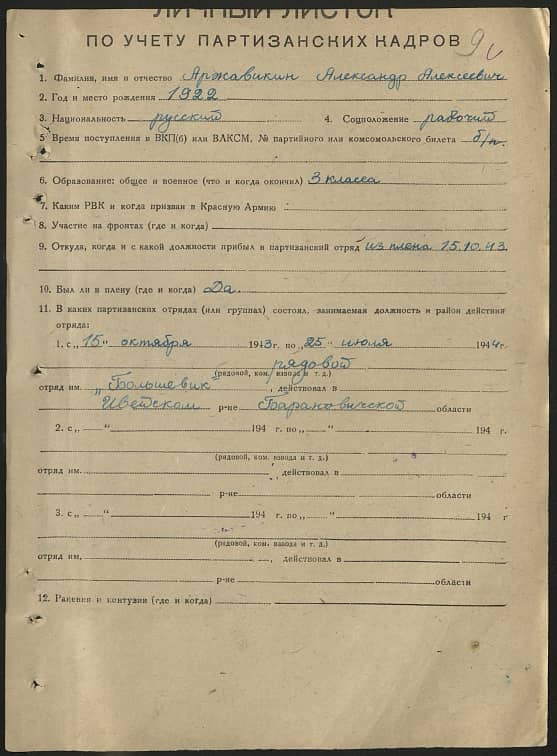 ЛИЧНЫЙ ЛИСТОК
ПО УЧЕТУ ПАРТИЗАНСКИХ КАДРОВ
1. Фамилия, имя и отчество Аржавикин Александр Алексеевич
2. Год и место рождения 1922
3. Национальность русский 4. Соцположение рабочий
5. Время поступления в ВКП(б) или ВЛКСМ, № партийного или комсомольского билета б/п.
6. Образование: общее и военное (что и когда окончил) 3 класса
7. Каким РВК и когда призван в Красную Армию
8. Участие на фронтах (где и когда)
9. Откуда, когда и с какой должности прибыл в партизанский отряд из плена 15.10.43.
10. Был ли в плену (где и когда) Да.
11. В каких партизанских отрядах (или группах) состоял, занимаемая должность и район действия
отряда:
1. с „15“ октября 1943г. по „25“ июля 1944г.
рядовой
(рядовой, ком. взвода и т. д.)
отряд им. „Большевик“, действовал в
р-не Барановичской области
2. с „—“ 194 г. по „—“ 194 г.
(рядовой, ком. взвода и т. д.)
отряд им. , действовал в
р-не области
3. с „—“ 194 г. по „—“ 194 г
(рядовой, ком. взвода и т. д.)
отряд им. , действовал в
р-не области
12. Ранения и контузии (где и когда)